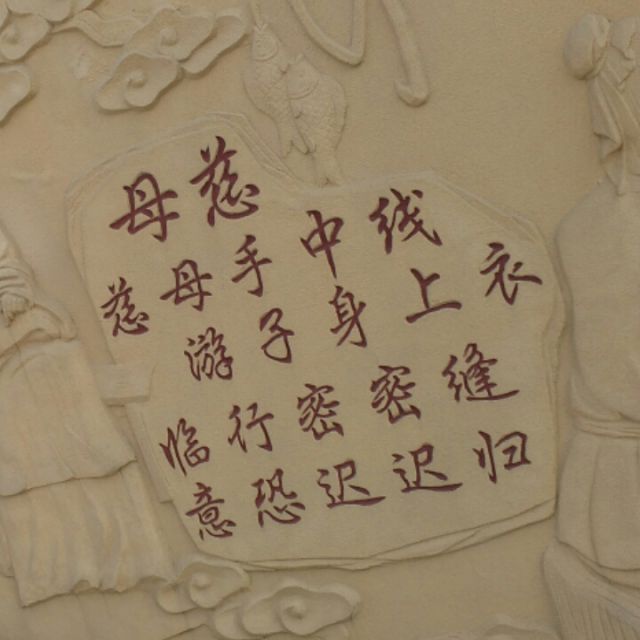 母慈
慈母手中线
游子身上衣
临行密密缝
意恐迟迟归